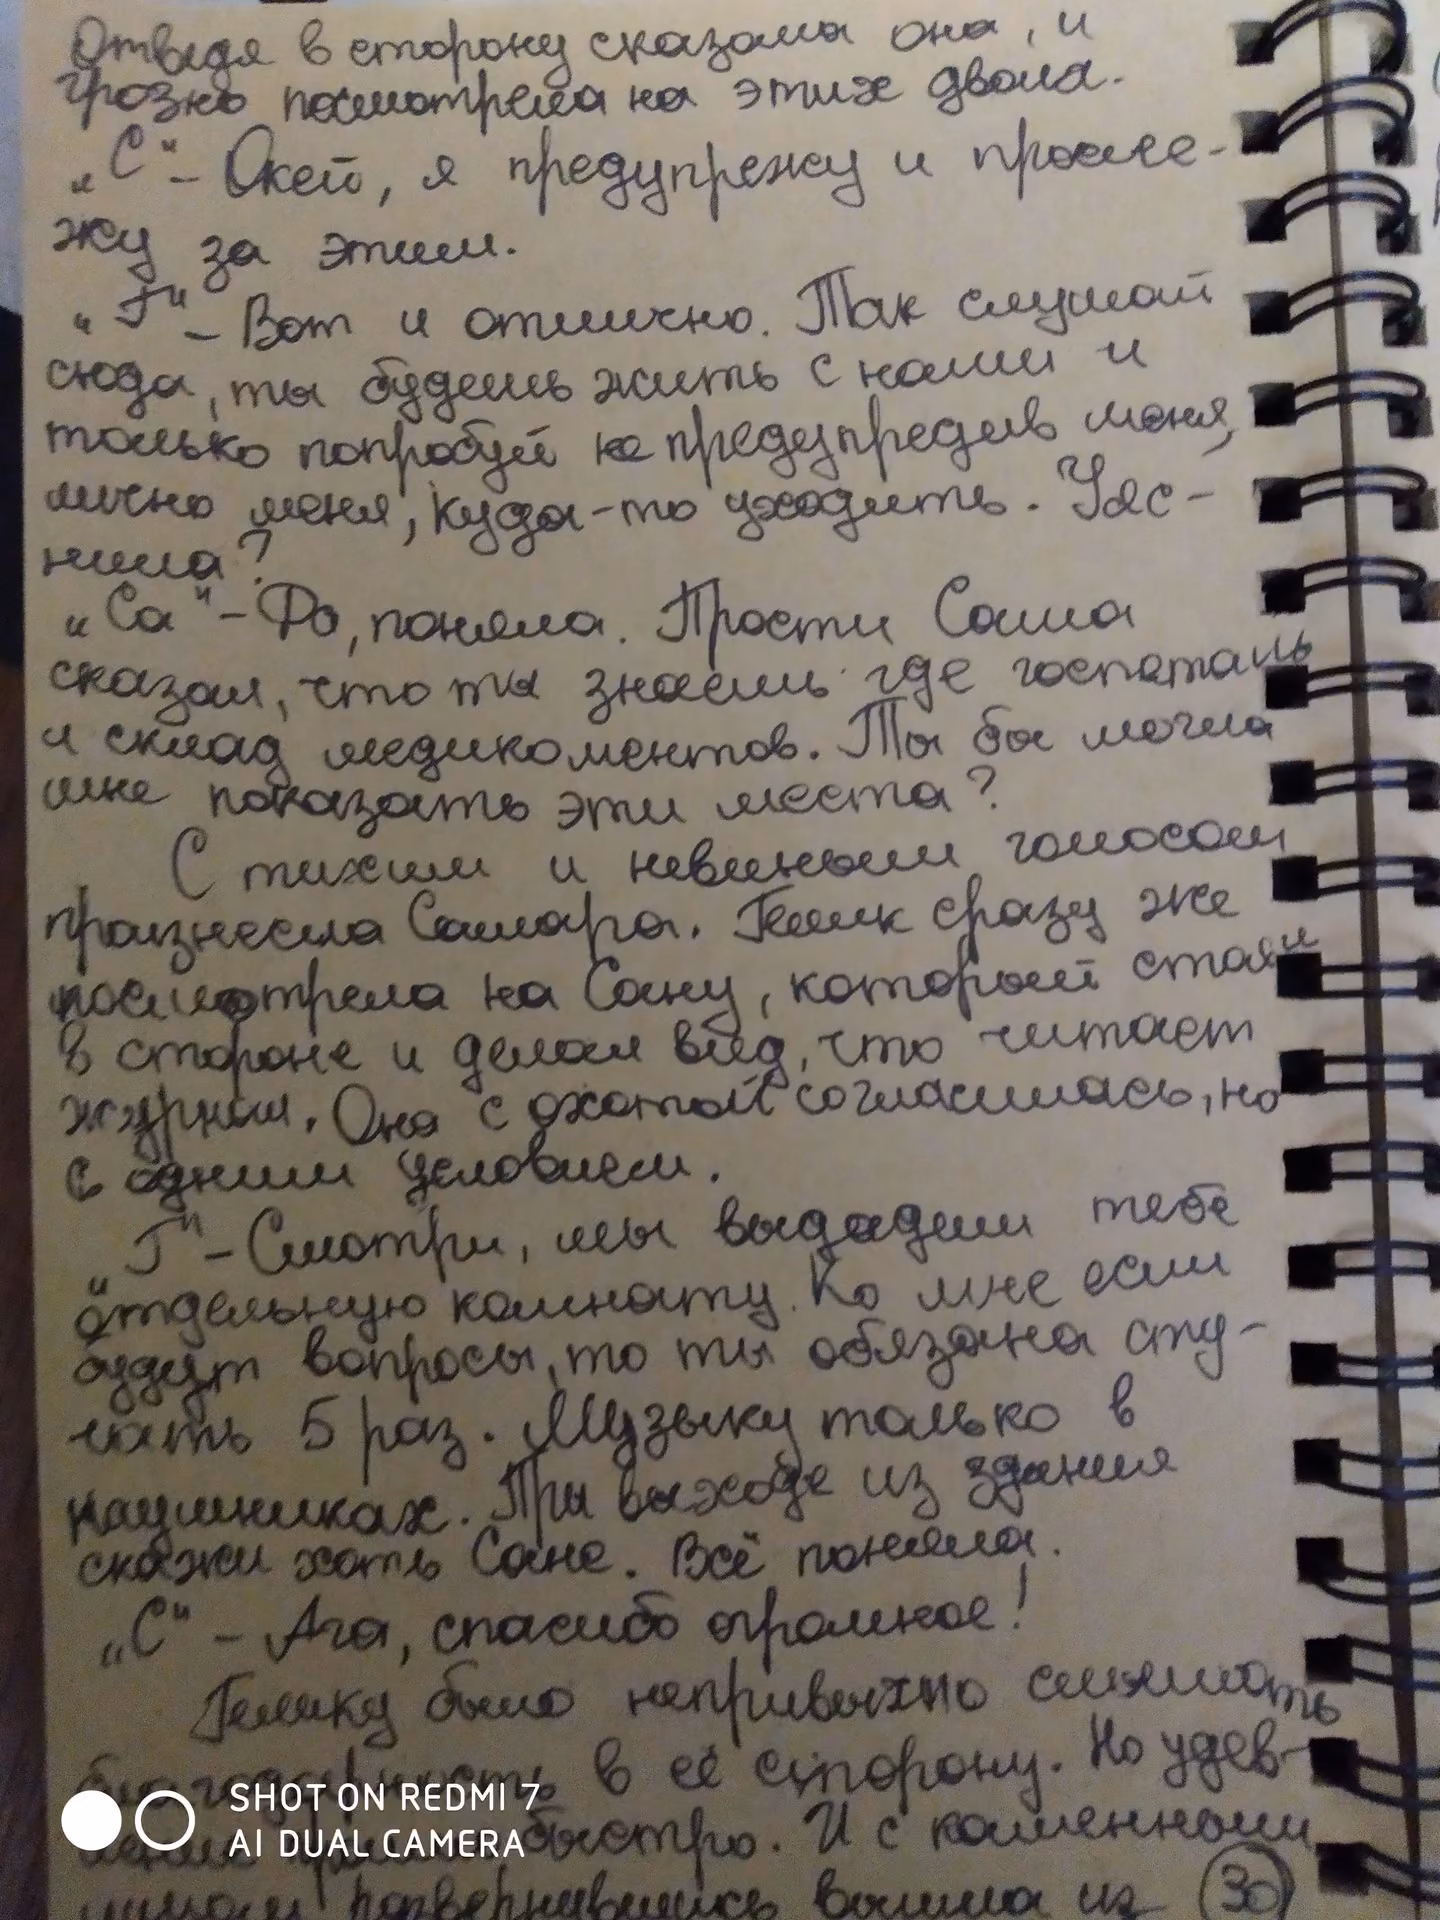 Отведя в сторону сказала она, и
грозно посмотрела на этих двоиа.
„С" - Окей, я предупрежу и просле-
жу за этим.
„Г" - Вот и отлично. Так слушай
сюда, ты будешь жить с нами и
только попробуй не предупредив меня,
лично меня, куда-то уходить. Уяс-
нила?
„Са" - Да, поняла. Прости Саша
сказал, что ты знаешь где госпеталь
и склад медикоментов. Ты бы могла
мне показать эти места?
С тихим и невиным голосом
произнесла Самара. Гелик сразу же
посмотрела на Саню, который стоял
в стороне и делал вид, что читает
журнал. Она с охотой согласилась, но
с одним условием.
„Г" - Смотри, мы выдадим тебе
отдельную комнату. Ко мне если
будут вопросы, то ты обязана сту-
чать 5 раз. Музыку только в
наушниках. При выходе из здания
скажи хоть Сане. Всё поняла.
„С" - Ага, спасибо огромное!
Гелику было непривычно слышать
благодарность в её сторону. Но удев-
быстро. И с каменными
развернувшись вышла из 30
SHOT ON REDMI 7
AI DUAL CAMERA